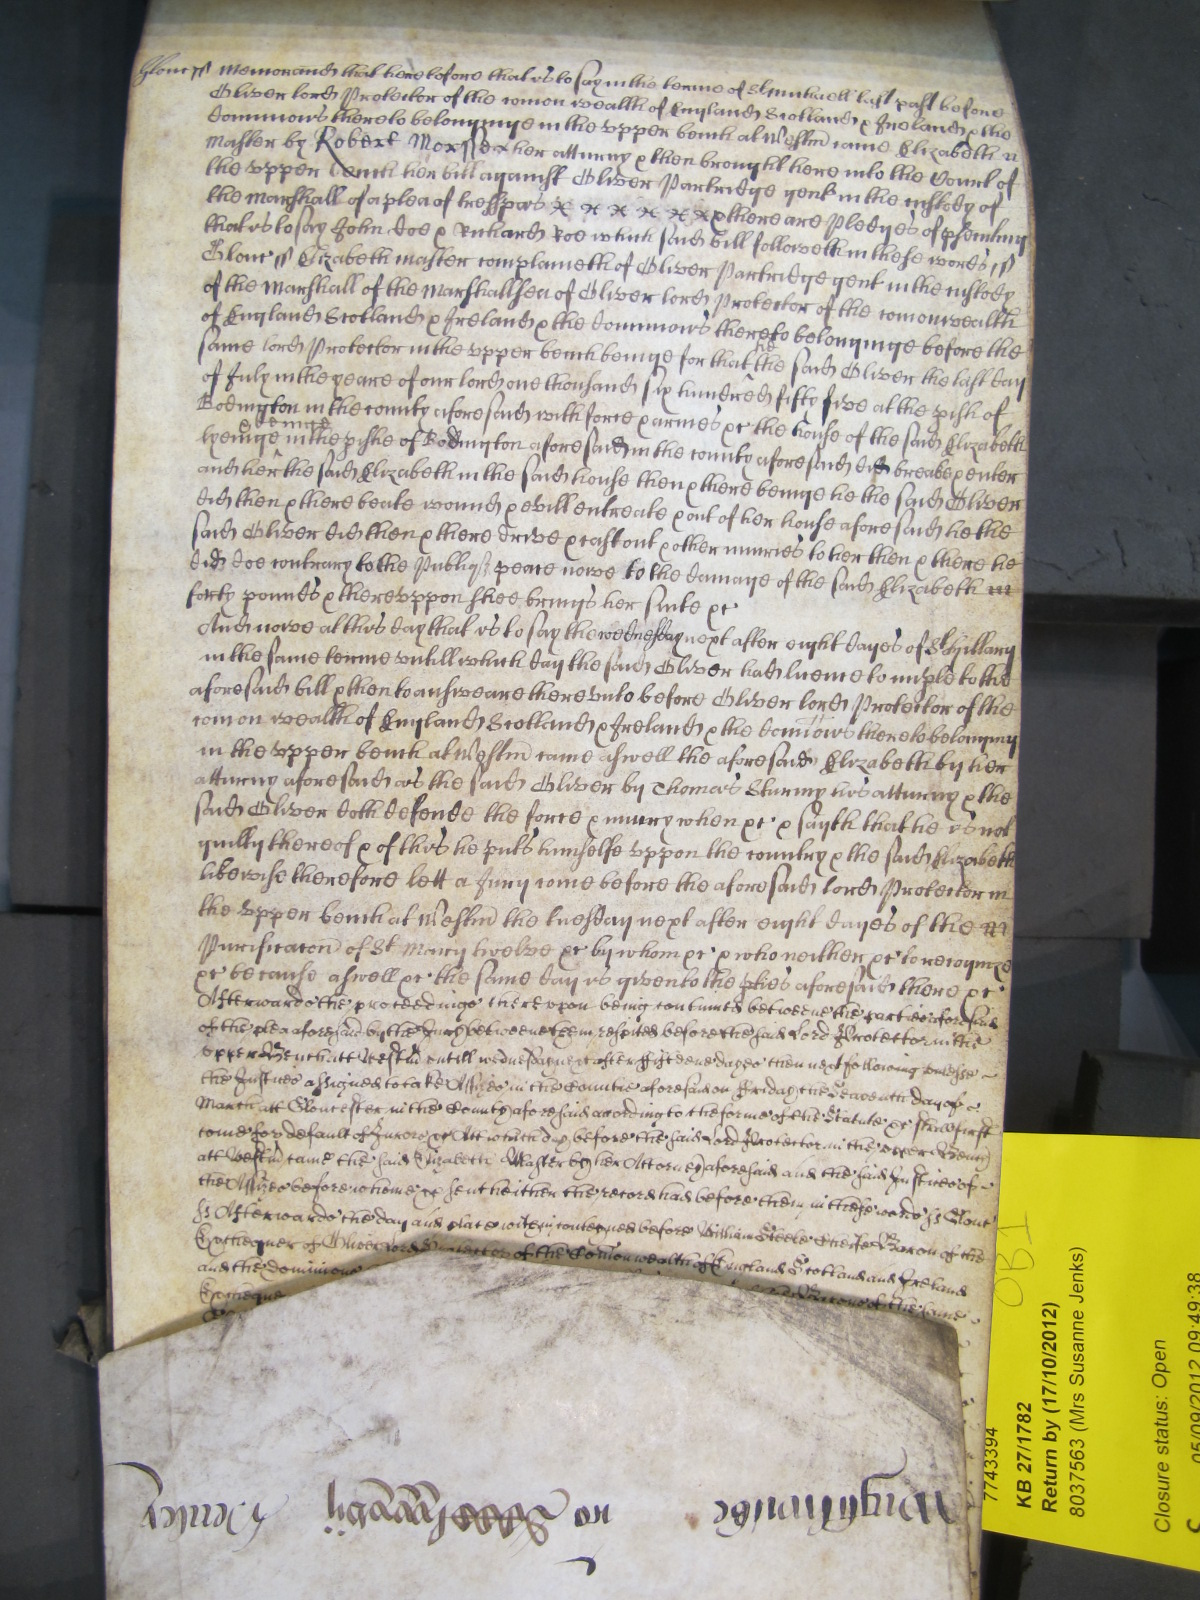 Glouc ss Memorand that heretofore that is to say in the terme of St Michaell last past before
Oliver lord Protector of the comon wealth of England Scotland & Ireland & the
dominions thereto belonginge in the upper bench at Westm came Elizabeth
Master by Robert Morse her atturny & then brought here into the Court of
the upper bench her bill against Oliver Partridge gent in the custody of
the Marshall of a plea of trespas & there are pledges of psecuting
that is to say John doe & Richard Roe which said bill followeth in these words ss
Glouc ss Elizabeth Master complaineth of Oliver Partridge gent in the custody
of the Marshall of the Marshallsea of Oliver lord Protector of the comonwealth
of England Scotland & Ireland & the dominions thereto belonginge before the
same lord Protector in the upper bench beinge for that he the said Oliver the last day
of July in the yeare of our lord one thousand six hundred fifty five at the pish of
Bodington in the county aforesaid with force & armes &c the house of the said Elizabeth
lyeinge in the pishe of Bodington aforesaid in the county aforesaid did breake & enter
and her the said Elizabeth in the said house then & there beinge he the said Oliver
did then & there beate wound & evill entreate & out of her house aforesaid he the
said Oliver did then & there drive & cast out & other iniuries to her then & there he
did doe contrary to the Publiq peace nowe to the damage of the said Elizabeth
forty pounds & thereuppon shee brings her suite &c
And nowe at this day that is to say the wednesday next after eight dayes of St Hillary
in the same terme untill which day the said Oliver had licence to imple to the
aforesaid bill & then to answeare thereunto before Oliver lord Protector of the
comon wealth of England Scotland & Ireland & the dominions thereto belonging
in the upper bench at Westm came aswell the aforesaid Elizabeth by her
atturny aforesaid as the said Oliver by Thomas Sturmy his atturny & the
said Oliver doth defende the force & iniury when &c & sayth that he is not
guilty thereof & of this he puts himselfe uppon the country & the said Elizabeth
likewise therefore lett a Jury come before the aforesaid lord Protector in
the upper bench at Westm the tuesday next after eight dayes of the
Purificacon of St Mary twelve &c by whom &c & who neither &c to recognize
&c because aswell &c the same day is given to the pties aforesaid there &c
Afterwards the proceedings thereupon being continued betweene the parties aforesaid
of the plea aforesaid by the Jury betweene them respited before the said Lord Protector in the
upper Bench att Westm untill wednesday next after fifteene dayes then next following unlesse
the Justices assigned to take Assizes in the Countie aforesaid on Friday the Seaventh day of
March att Gloucester in the County aforesaid according to the forme of the Statute &c shall first
come for default of Jurors &c Att which day before the said Lord Protector in the upper Bench
att Westm came the said Elizabeth Master by her Attorney aforesaid and the said Justices of
the Assizes before whome &c sent hither the record had before them in these words ss Glouc
ss Afterwards the day and place within conteyned before William Steele Cheife Baron of the
Exchequer of Oliver Lord Protector of the Comonwealth of England Scotland and Ireland
and the dominions
Excheque Barons of the same
Wrightwicke
Henley
7743394
KB 27/1782
Return by (17/10/2012)
8037563 (Mrs Susanne Jenks)
Closure status: Open
05/09/2012 09:49:38
OBI